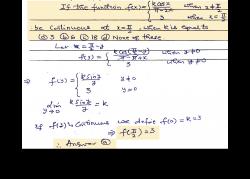 If the function f(x) = { k cos x / π-2x when x ≠ π/2
3 when x = π/2
be continuous at x = π/2, then k is equals to
(a) 3 (b) 6 (c) 18 (d) None of these
Let x = π/2 - y
f(y) = { k cos(π/2 - y) / π-π+ when y ≠ 0
3 when y = 0
⇒ f(y) = { k sin y / y ≠ 0
3 y = 0
lim y→0 k sin y / = k
If f(y) continuous we define f(0) = k = 3
⇒ f(π/2) = 3
∴ Answer